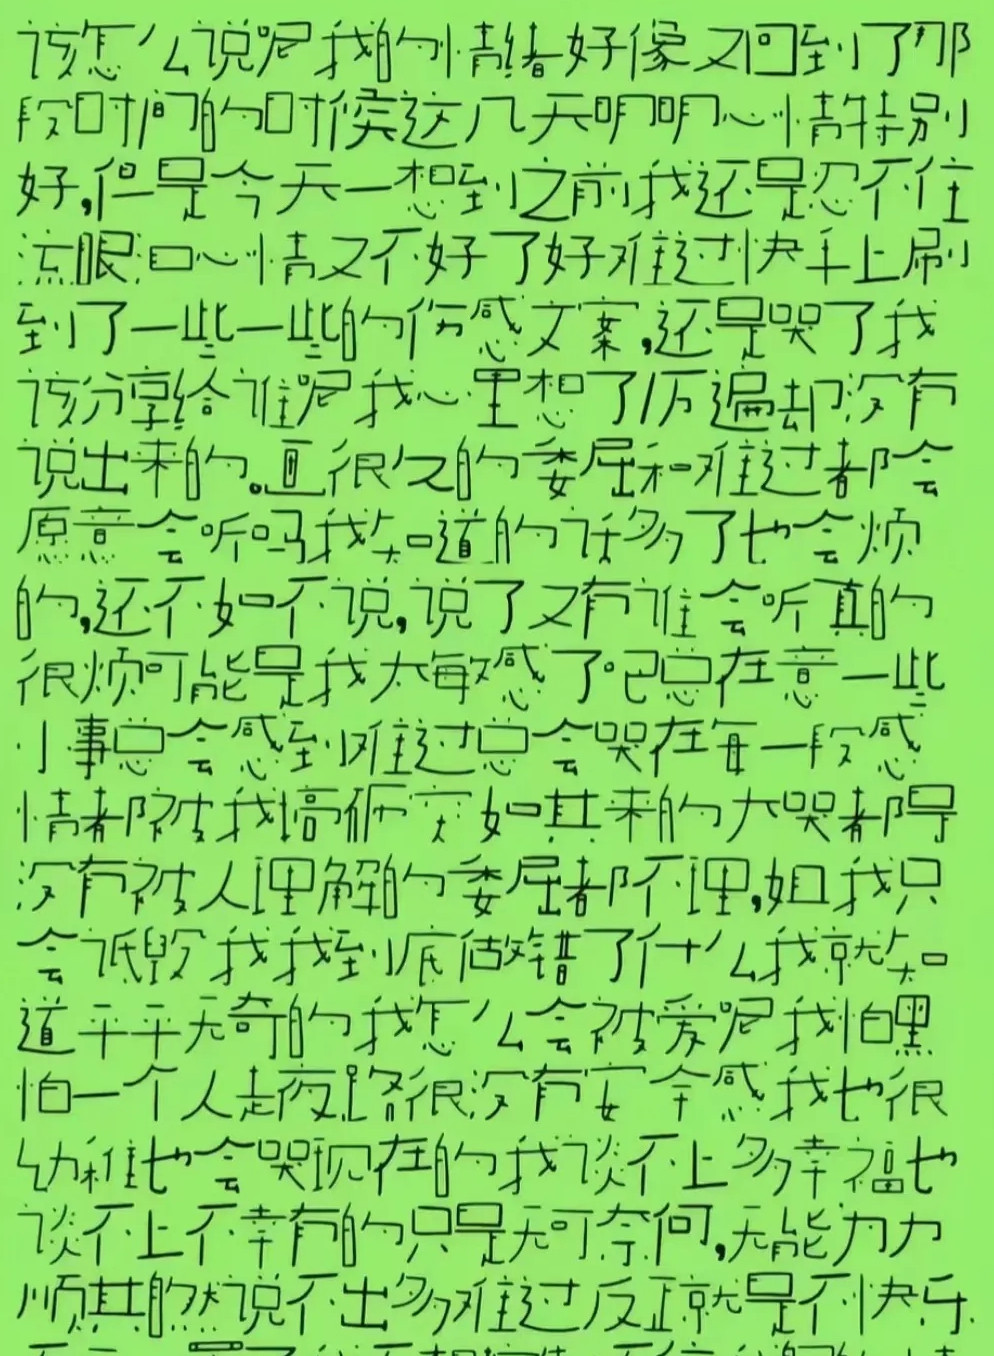 该怎么说呢我的情绪好像又回到了那
段时间的时候这几天明明心情特别
好,但是今天一想到之前我还是忍不住
流眼泪心情又不好了好难过快手上刷
到了一些一些的伤感文案,还是哭了我
该分享给谁呢我心里想了万遍却没有
说出来的。画很久的委屈和难过都会
愿意会听吗我知道的话多了也会烦
的,还不如不说,说了又有谁会听真的
很烦可能是我太敏感了吧总在意一些
小事总会感到难过总会哭在每一段感
情都被我搞砸突如其来的大哭都是
没有被人理解的委屈都不理,姐我只
会诋毁我我到底做错了什么我就知
道平平无奇的我怎么会被爱呢我怕黑
怕一个人走夜路很没有安全感我也很
幼稚也会哭现在的我谈不上多幸福也
谈不上不幸有的只是无可奈何,无能为力
顺其自然说不出多难过反正就是不快乐